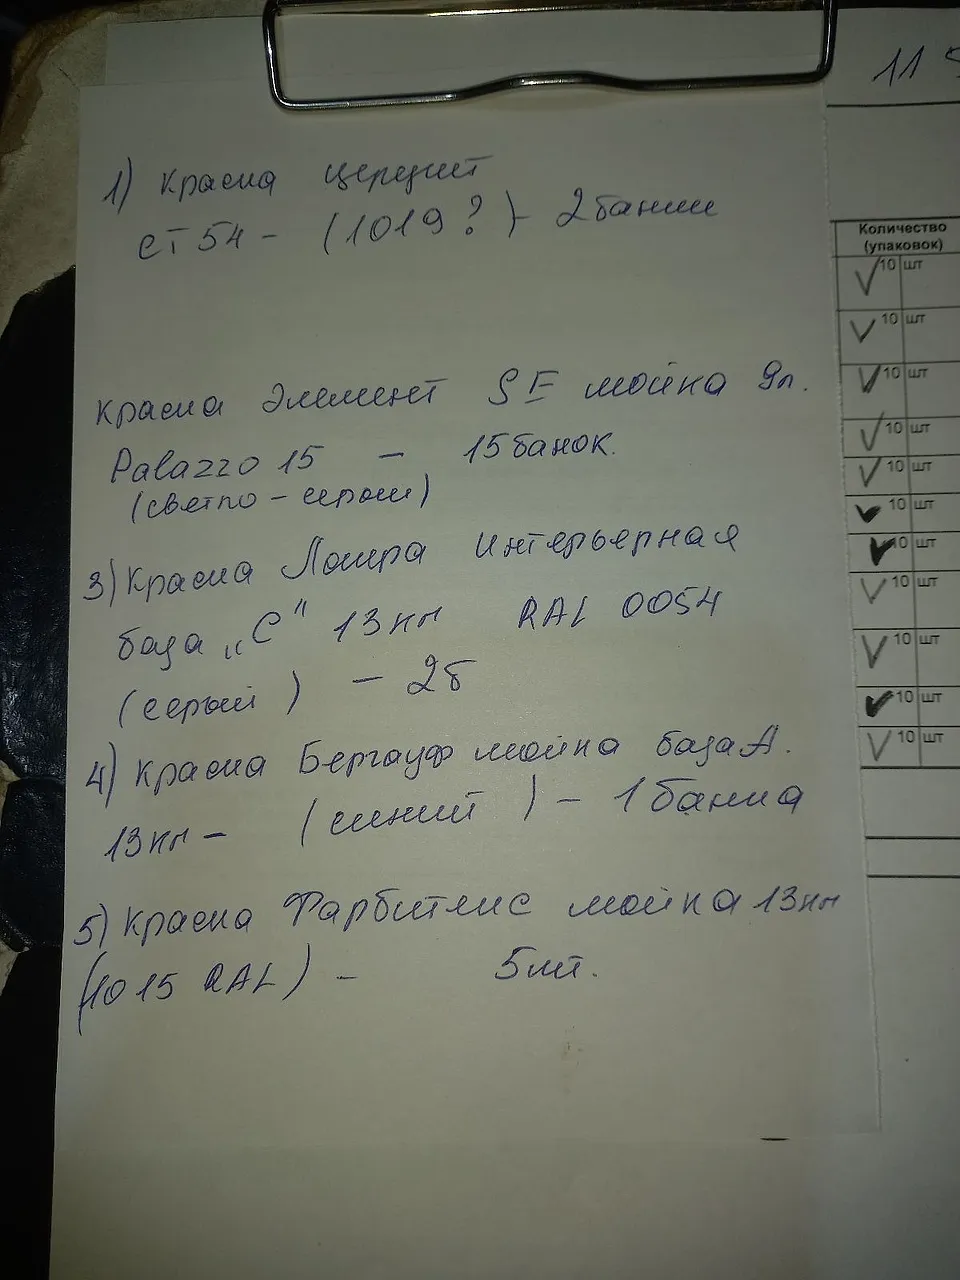 11
1) Краска церезит
СТ 54 - (1019?) - 2 банки
Количество
(упаковок)
10 шт
10 шт
10 шт
10 шт
10 шт
10 шт
10 шт
10 шт
10 шт
10 шт
10 шт
Краска Элемент SE мойка 9л.
Palazzo 15 - 15 банок.
(светло-серый)
3) Краска Лоира Интерьерная
база „С" 13кг RAL 0054
(серый) - 2б
4) Краска Бергауф мойка база А.
13кг - (синий) - 1 банка
5) Краска Фарбитекс мойка 13кг
(1015 RAL) - 5шт.